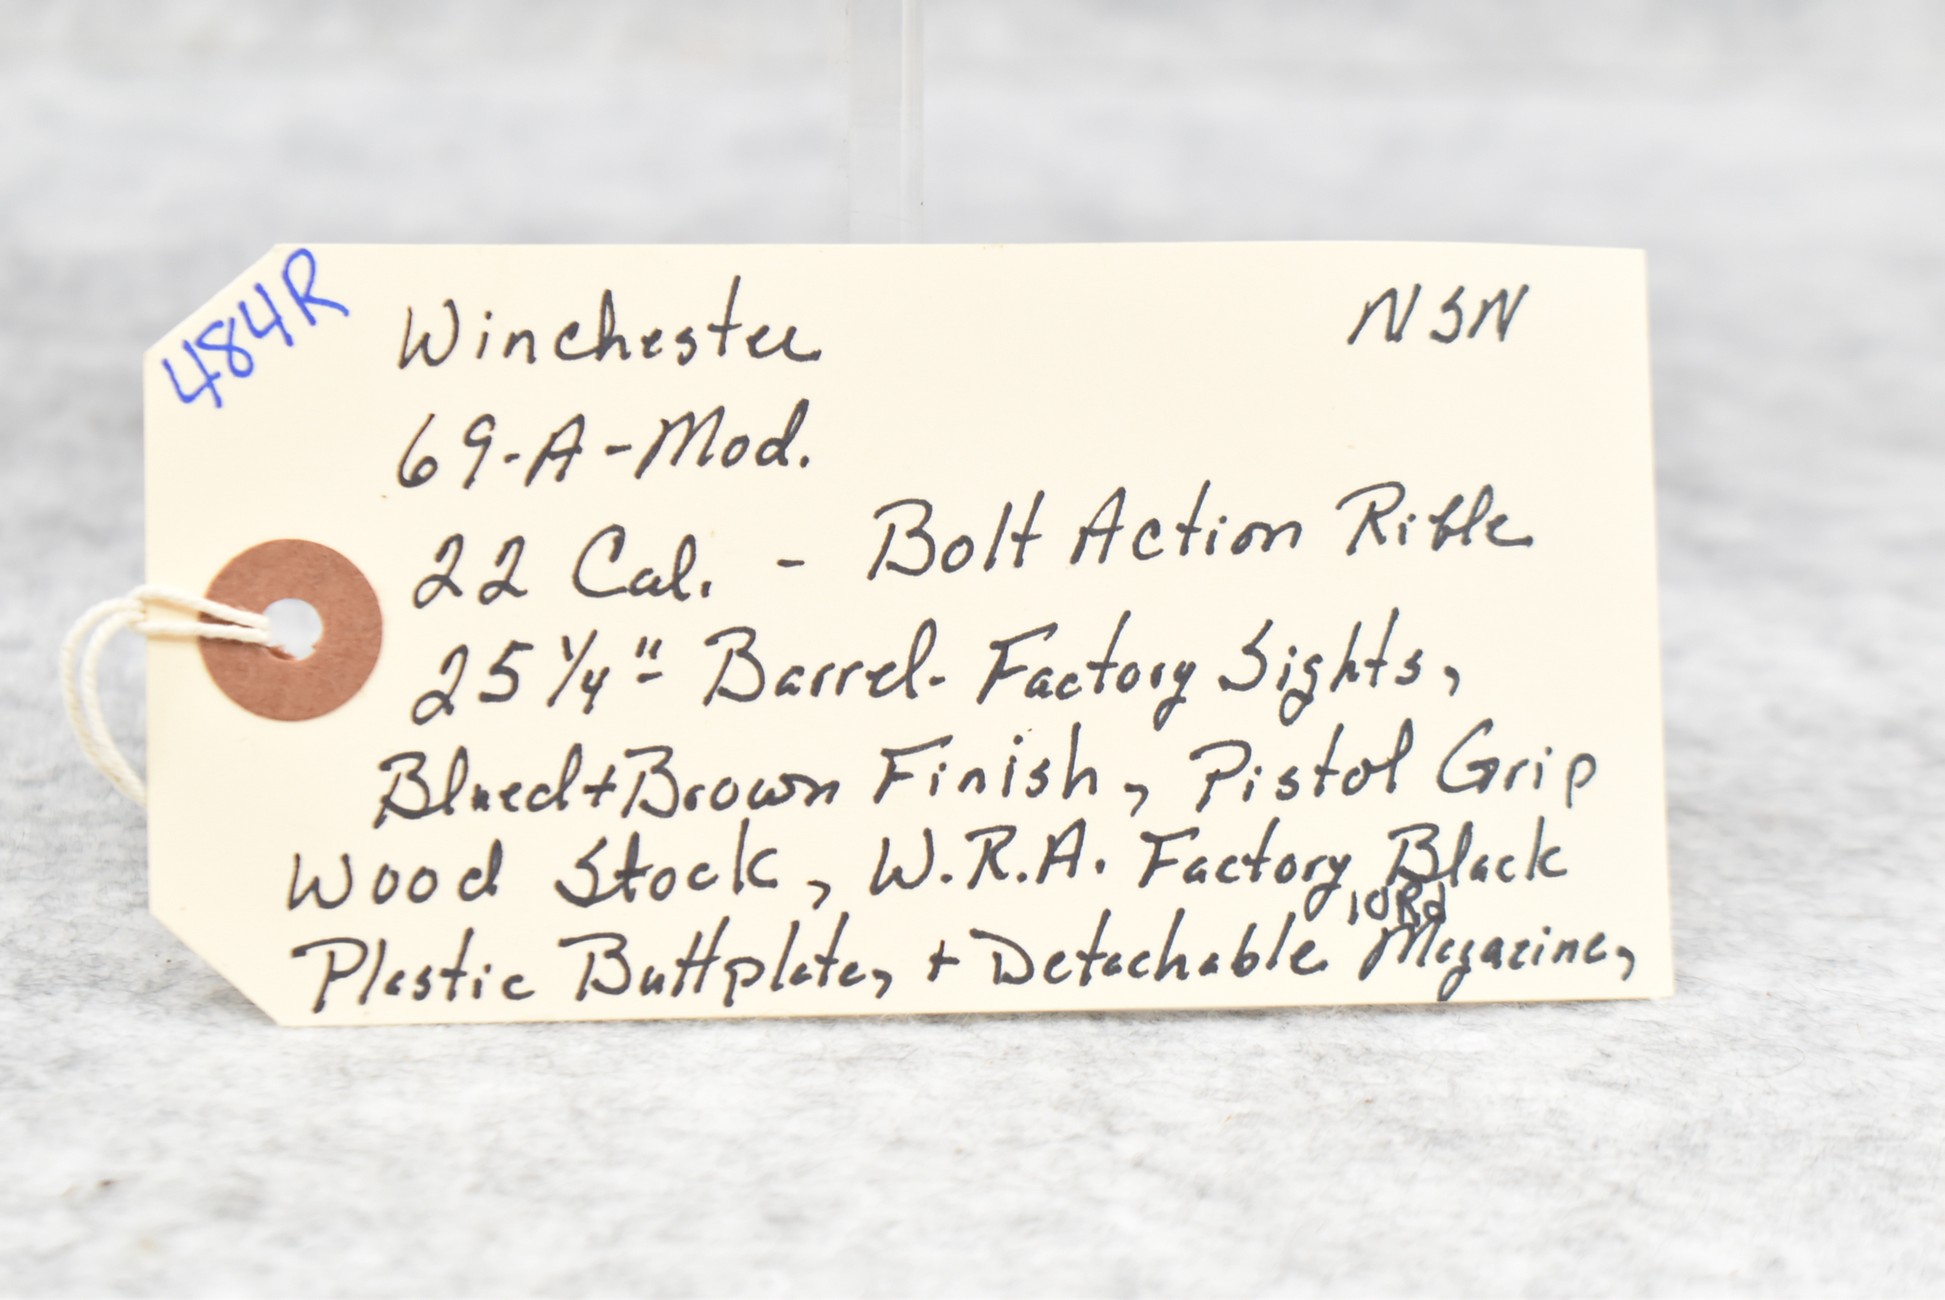 484R
Winchester NSN
69-A-Mod.
22 Cal. - Bolt Action Rifle
25 1/4" - Barrel - Factory Sights,
Blued + Brown Finish, Pistol Grip
Wood Stock, W.R.A. Factory Black
10Rd
Plastic Buttplate, + Detachable Magazine,